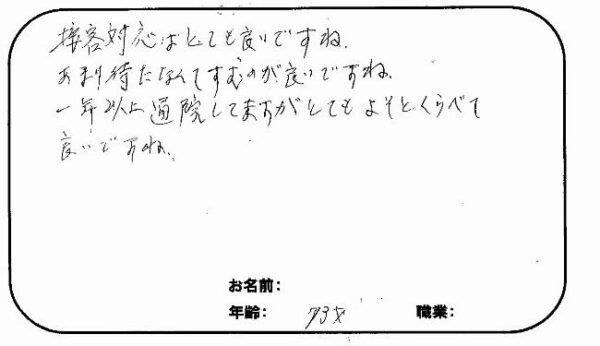 接客対応はとても良いですね、
あまり待たなくてすむのが良いですね、
一年以上通院してますがとてもよそとくらべて
良いですね、
お名前:
年齢: 73才 職業: